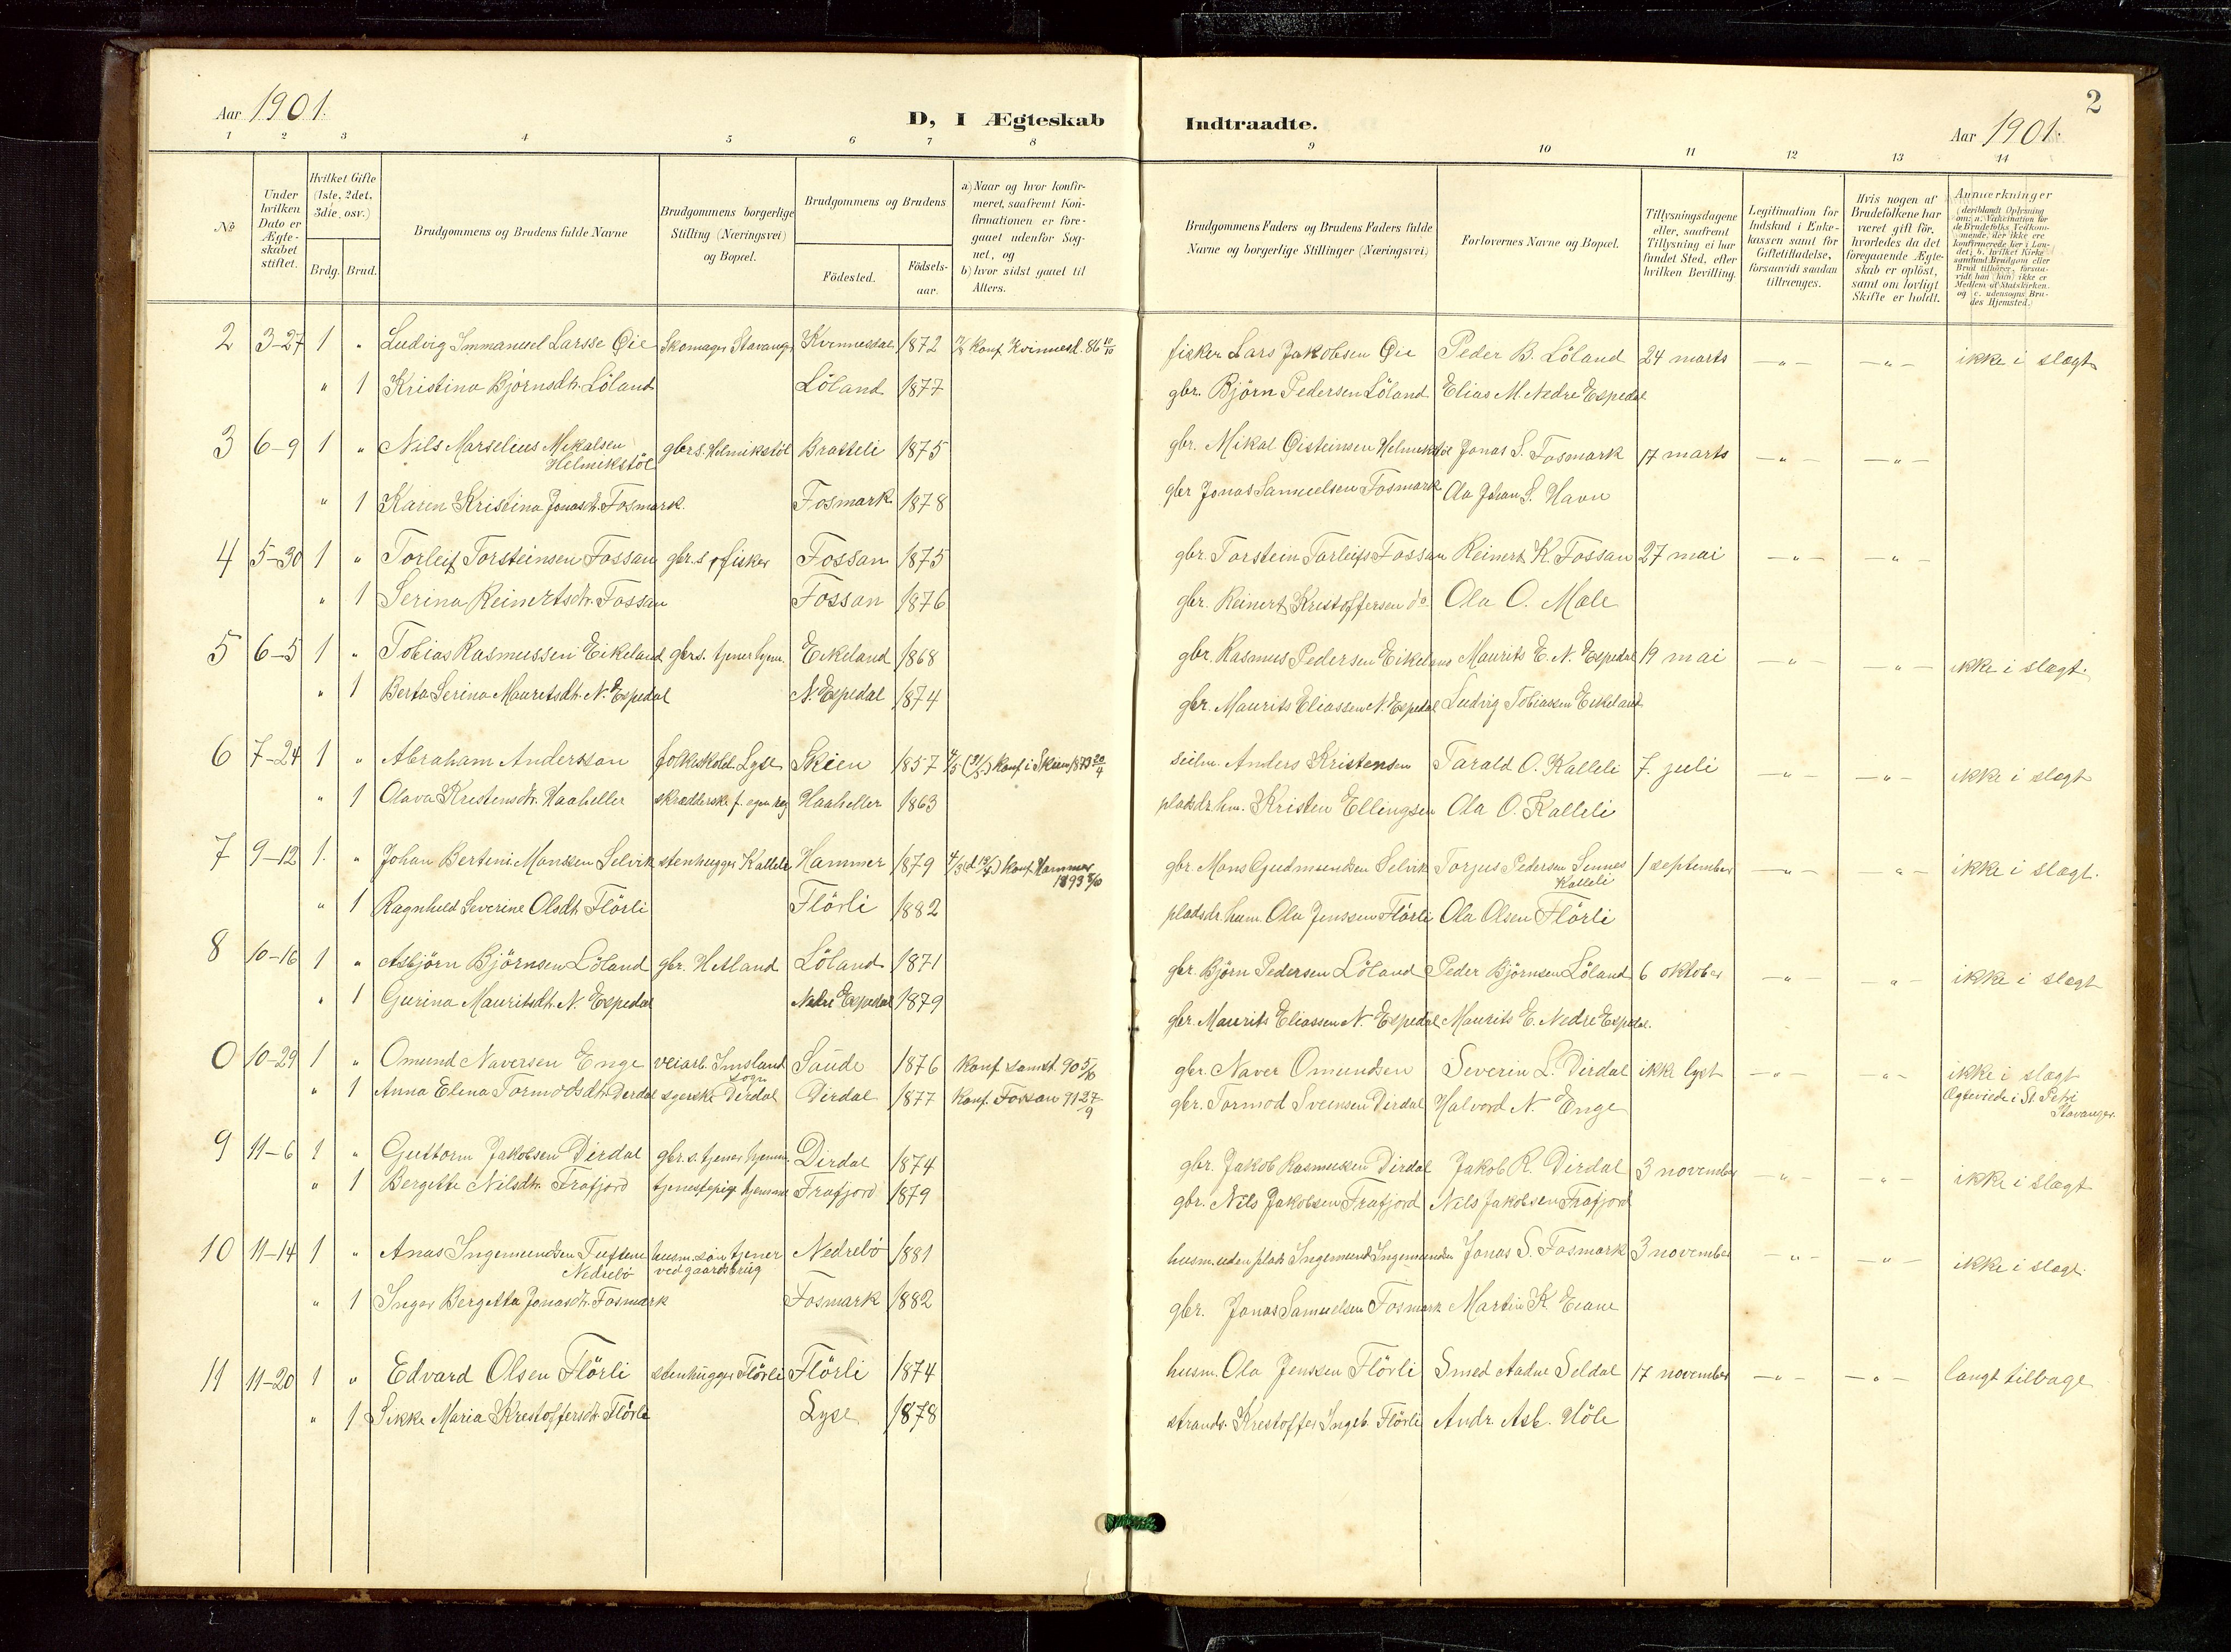 2
Aar 1901.
D, I Ægteskab Indtraadte.
Aar 1901.
1 2 3 4 5 6 7 8 9 10 11 12 13 14
№
Under hvilken Dato er Ægteskabet stiftet.
Hvilket Gifte (1ste, 2det, 3die, osv.)
Brdg. Brud.
Brudgommens og Brudens fulde Navne
Brudgommens borgerlige Stilling (Næringsvei) og Bopæl.
Brudgommens og Brudens
Födested.
Födsels-aar.
a) Naar og hvor konfirmeret, saafremt Konfirmationen er foregaaet udenfor Sognet, og
b) hvor sidst gaaet til Alters.
Brudgommens Faders og Brudens Faders fulde Navne og borgerlige Stillinger (Næringsvei)
Forlovernes Navne og Bopæl.
Tillysningsdagene eller, saafremt Tillysning ei har fundet Sted, efter hvilken Bevilling.
Legitimation for Indskud i Enkekassen samt for Giftetilladelse, forsaavidt saadan tiltrænges.
Hvis nogen af Brudefolkene har været gift før, hvorledes da det foregaaende Ægteskab er oplöst, samt om lovligt Skifte er holdt.
Anmærkninger
2 3-27 1 " Ludvig Immanuel Larsse Øie Skomager Stavanger Kvinnesdal 1872 konf Kvinnesd. 86 fisker Lars Jakobsen Øie Peder B. Löland 24 marts -"- -"- ikke i slægt
" 1 Kristina Bjørnsdtr. Löland Löland 1877 gbr. Björn Pedersen Löland Elias M. Nedre Espedal
3 6-9 1 " Nils Marselius Mikalsen Helmikstöl gbrs. Helmikstöl Bratteli 1875 gbr. Mikal Øisteinsen Helmikstöl Jonas S. Fosmark 17 marts -"- -"-
" 1 Karen Kristina Jonasdt. Fosmark Fosmark 1878 gbr Jonas Samuelsen Fosmark Ola Johan S. Havn
4 5-30 1 " Torleif Torsteinsen Fossan gbr.s fisker Fossan 1875 gbr. Torstein Torleifs Fossan Reinert K. Fossan 27 mai -"- -"-
" 1 Serina Reinertsdtr. Fossan Fossan 1876 gbr. Reinert Kristoffersen do. Ola O. Mæle
5 6-5 1 " Tobias Rasmussen Eikeland gbrs. tjener hjem. Eikeland 1868 gbr. Rasmus Pedersen Eikeland Maurits E. N. Espedal 19 mai -"- -"- ikke i slægt.
" 1 Berta Serina Mauritsdt. N. Espedal N. Espedal 1874 gbr. Maurits Eliassen N. Espedal Ludvig Tobiassen Eikeland
6 7-24 1 " Abraham Anderssen folkeskold. Lyse Skien 1857 konf. i Skien 1873 20/4 seilm. Anders Kristensen Tarald O. Kalleli 7. juli -"- -"- ikke i slægt
" 1 Olava Kristensdtr. Haaheller skrædderske f. egen reg Haaheller 1863 pladsdr. hm. Kristen Ellingsen Ola O. Kalleli
7 9-12 1. " Johan Bertini Monssen Selvik stenhugger Kalleli Hammer 1879 konf. Hammer 1893 gbr. Mons Gudmundsen Selvik Torjus Pedersen Sennes Kalleli 1 september -"- -"- ikke i slægt.
" 1 Ragnhild Severine Olsdt. Flörli Flörli 1882 pladsdr. husm. Ola Jenssen Flörli Ola Olsen Flörli
8 10-16 1 " Asbjörn Björnsen Löland gbr. Hetland Löland 1871 gbr. Björn Pedersen Löland Peder Björnsen Löland 6 oktober -"- -"- ikke i slægt
" 1 Gurina Mauritsdt. N. Espedal Nedre Espedal 1879 gbr. Maurits Eliassen N. Espedal Maurits E. Nedre Espedal.
0 10-29 1 " Omund Naversen Enge veiarb. Imsland sogn Saude 1876 konf samst. 90 5/10 gbr. Naver Omundsen Severin L. Dirdal ikke lyst -"- -"- ikke i slægt
" 1 Anna Elena Tormodsdtr. Derdal syerske Dirdal Dirdal 1877 konf. Fossan 91 27/9 gbr. Tormod Sveinsen Dirdal Halvord N. Enge Ægteviede i St. Petri Stavanger.
9 11-6 1 " Guttorm Jakobsen Dirdal gbr.s. tjener hjemme Dirdal 1874 gbr. Jakob Rasmussen Dirdal Jakob R. Dirdal 3 november -"- -"- ikke i slægt
" 1 Bergette Nilsdtr. Frafjord tjenestepige hjemme Frafjord 1879 gbr. Nils Jakobsen Frafjord Nils Jakobsen Frafjord
10 11-14 1 " Anas Ingemundsen Tuftene Nedrebö husm. sön tjener ved gaardsbrug Nedrebö 1881 husm. uden plads Ingemund Ingemundsen Jonas S. Fosmark 3 november -"- -"- ikke i slægt.
" 1 Inger Bergetta Jonasdt. Fosmark Fosmark 1882 gbr. Jonas Samuelsen Fosmark Martin K. Eiane
11 11-20 1 " Edvard Olsen Flörli stenhugger Flörli Flörli 1874 husm. Ola Jenssen Flörli Smed Aadne Seldal 17 november -"- -"- langt tilbage
" 1 Sikke Maria Krestoffersdt. Flörli Lyse 1878 strands. Krestoffer Ingeb. Flörli Andr. Asb. Höle